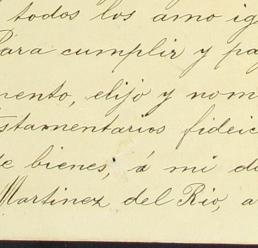 todos los amo ig
Para cumplir y pa
mento, elijo y nom
testamentarios fideic
de bienes, á mi
Martinez del Rio, a